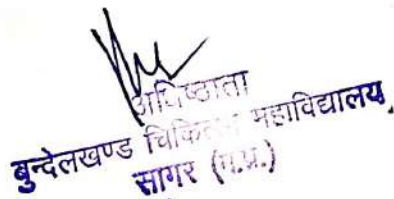 अधिष्ठाता
बुन्देलखण्ड चिकित्सा महाविद्यालय,
सागर (म.प्र.)